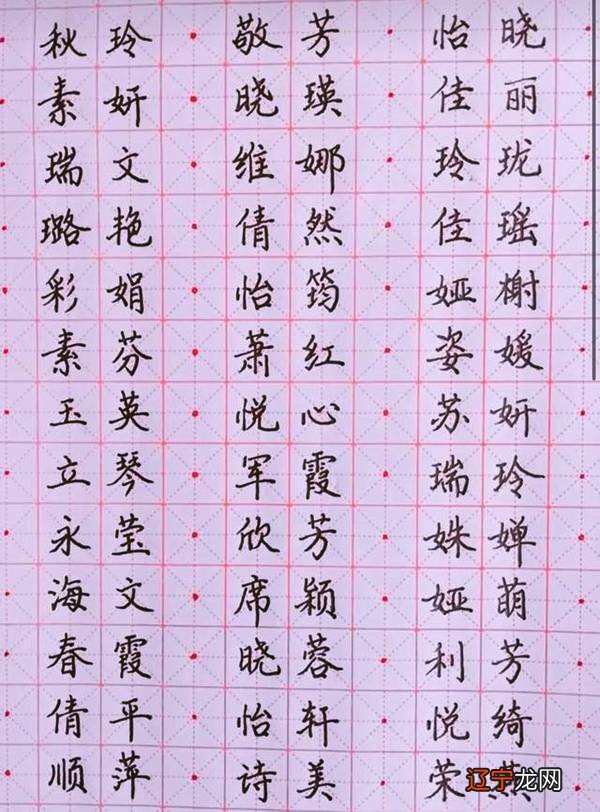 秋玲 敬芳 怡晓
素妍 晓瑛 佳丽
瑞文 维娜 玲珑
璐艳 倩然 佳瑶
彩娟 怡筠 娅榭
素芬 萧红 姿媛
玉英 悦心 苏妍
立琴 军霞 瑞玲
永莹 欣芳 姝婵
海文 席颖 娅萌
春霞 晓蓉 利芳
倩平 怡轩 悦绮
顺萍 诗美 荣
辽宁龙网